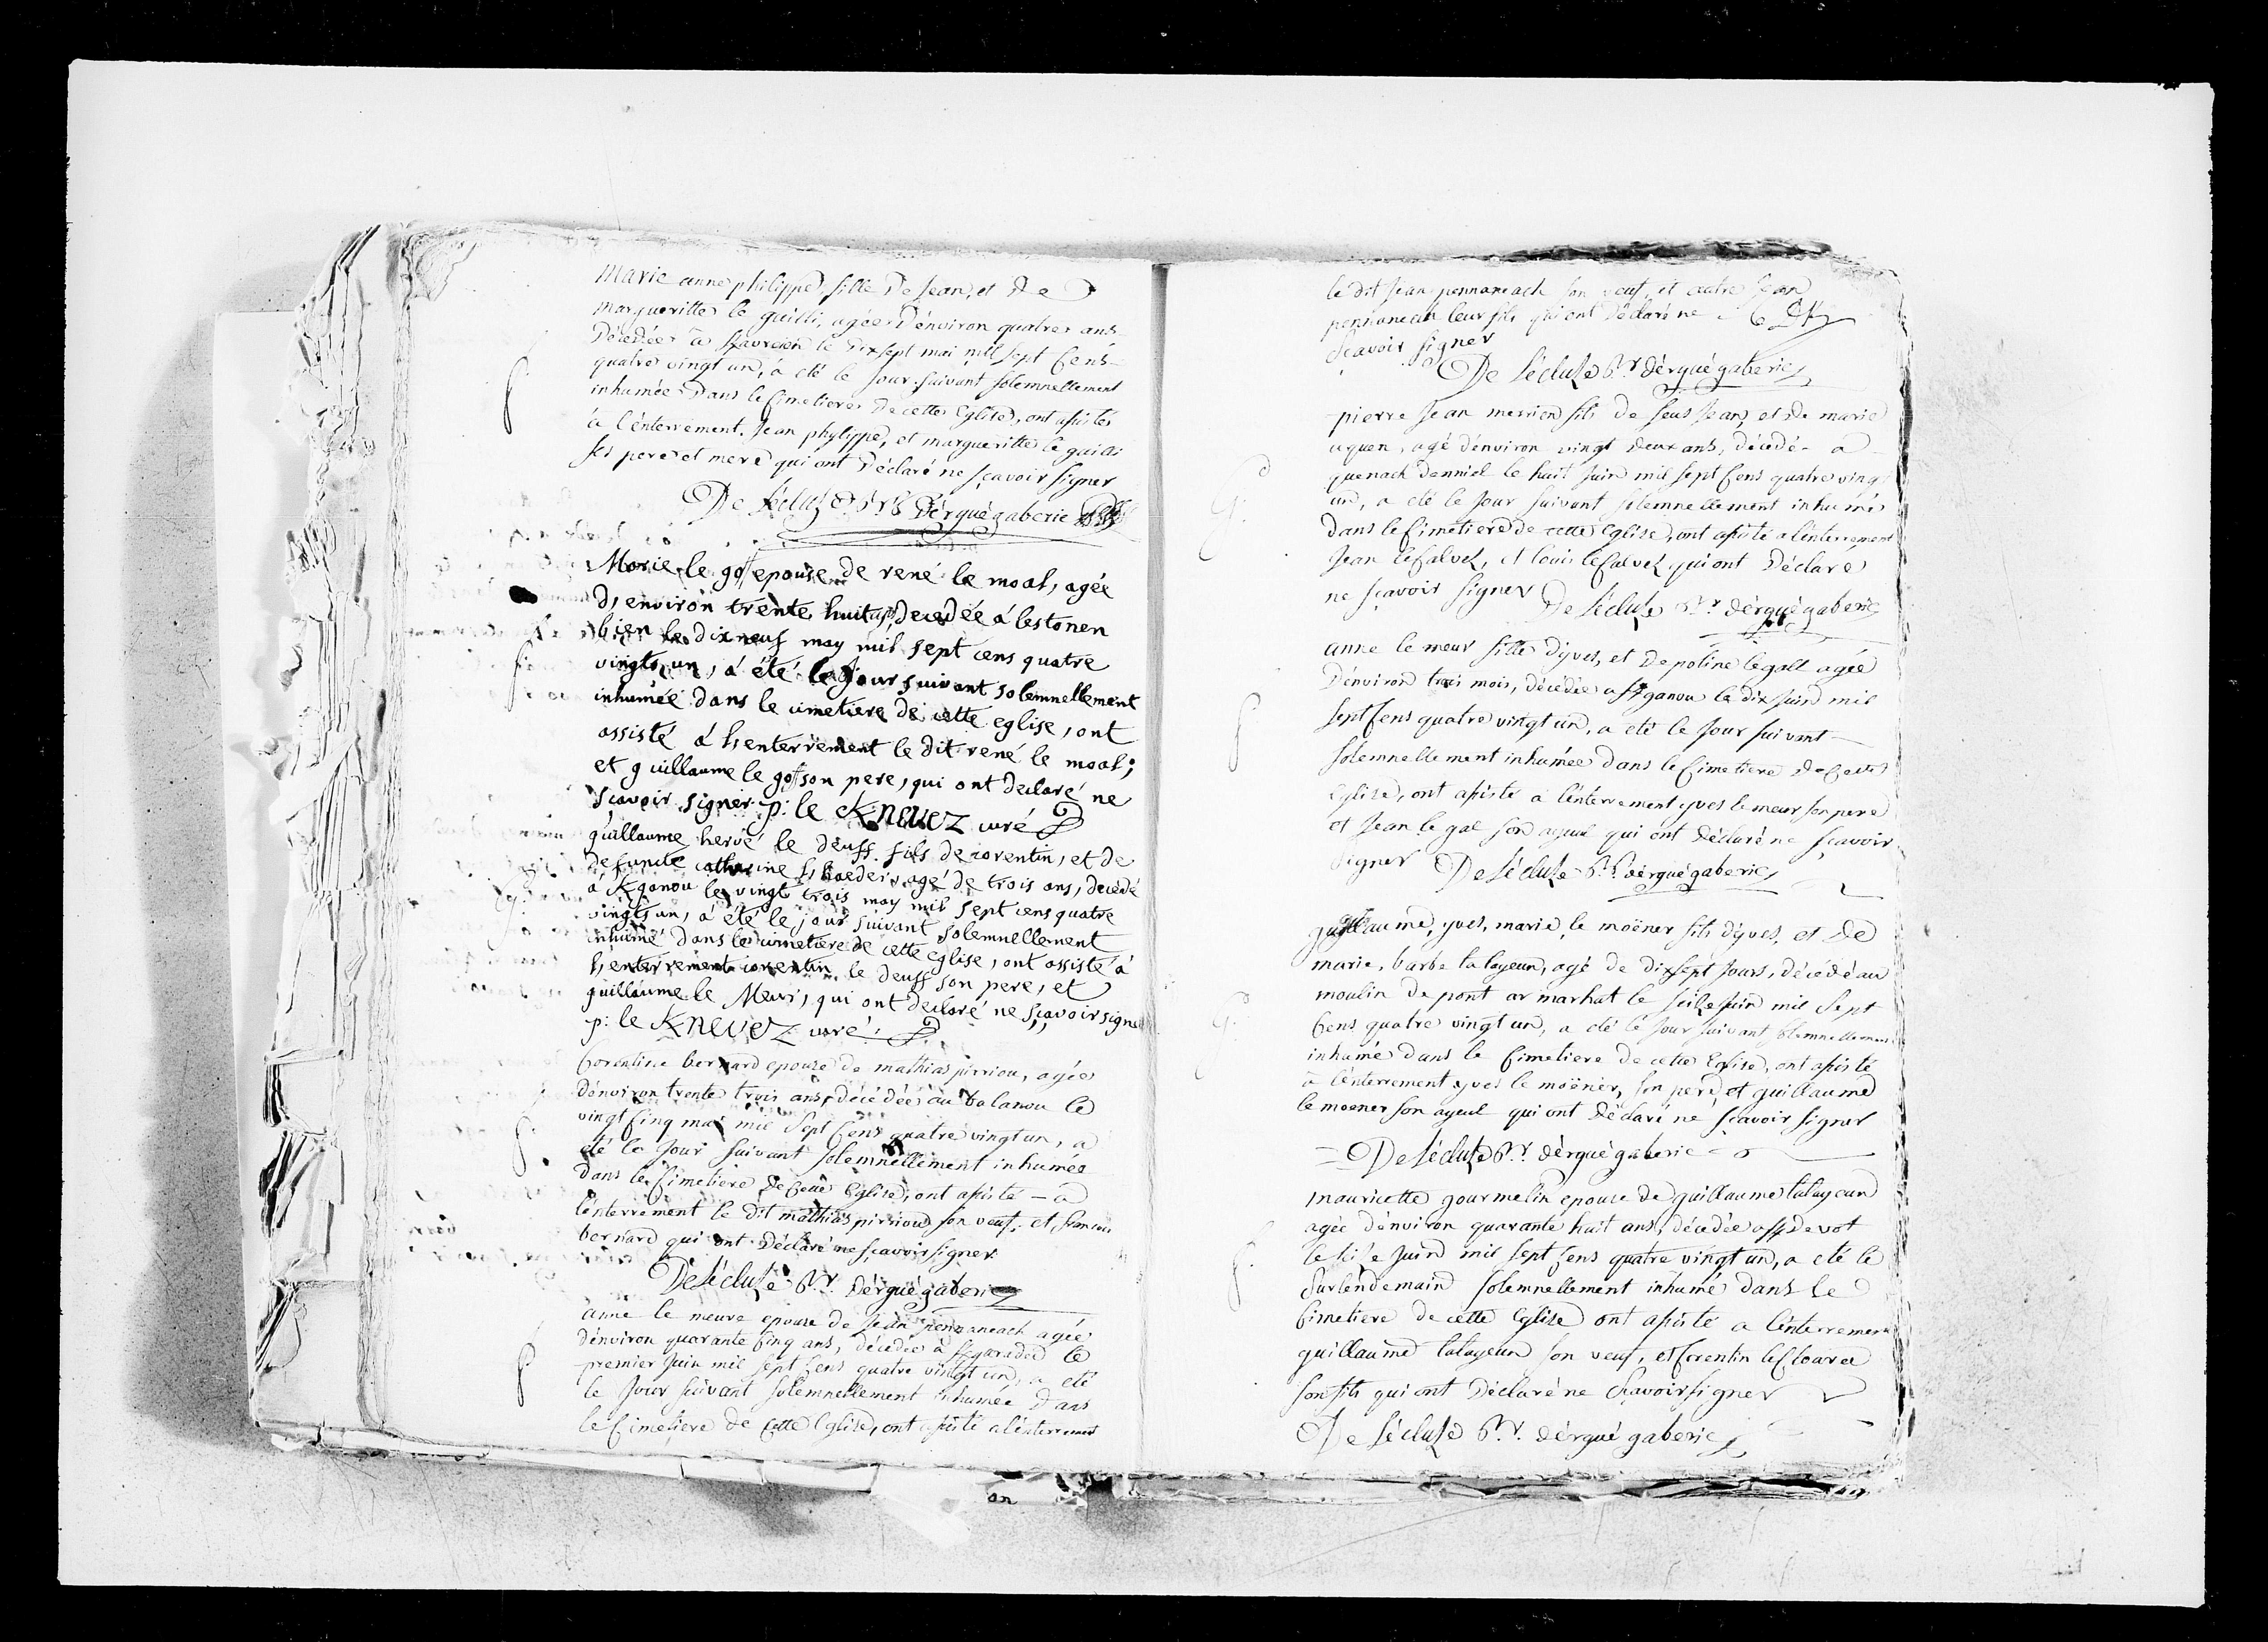 Marie anne philippe, fille De Jean, et De
margueritte le guilli, agée D'énviron quatre ans
Décédée à le Dix sept mai mil sept Cens
quatre vingt un, a eté le Jour suivant solemnellement
inhumée Dans le Cimetiere De cette Eglise, ont assistés
à l'énterrement. Jean phylippe, et margueritte le guilli
ses pere et mere qui ont Déclaré ne sçavoir signer
De Lécluze Dérguégaberic
Marie le goff epouse de rené le moal, agée
d'environ trente huit decedée á lestonen
bien le dix neuf may mil sept cens quatre
vingts un, á été le Jour suivant solemnellement
inhumée dans le cimetiere de cette eglise, ont
assisté á l'enterrement le dit rené le moal;
et guillaume le goff son pere, qui ont declaré ne
sçavoir signer p: le Knevez curé
guillaume hervé le deuff fils de corentin, et de
defuncte catherine agé de trois ans, decedé
á Kganou le vingt trois may mil sept cens quatre
vingts un, á été le jour suivant solemnellement
inhumé dans le cimetiere de cette eglise, ont assisté á
l'enterrement corentin le deuff son pere, et
guillaume le Meur, qui ont declaré ne sçavoir signer
p: le Knevez curé
Corentine bernard epouse de mathias pirriou, agée
dénviron trente trois ans, décédée au balanou le
vingt Cinq mai mil Sept Cens quatre vingt un, a
été le Jour suivant solemnellement inhumée
dans le Cimetiere De Cette Eglise, ont assisté - a
l'énterrement le dit mathias pirriou son veuf, et francois
bernard qui ont Déclaré ne sçavoir signer
De Lécluze Dérguégaberic
anne le meure epouse de Jean pennaneach agée
dénviron quarante Cinq ans, décédée à Kgaradec le
premier Juin mil sept Cens quatre vingt un, a eté
le Jour suivant solemnellement inhumée Dans
le Cimetiere de Cette Eglise, ont assisté a l'énterrement
le dit Jean pennaneach son veuf, et autre Jean
pennaneach leur fils qui ont Déclaré ne
sçavoir signer
De Lécluze dérguégaberic
pierre Jean merrien fils de feus Jean, et De marie
uguen, agé dénviron vingt deux ans, décédé - a
quenach Denniel le huit Juin mil sept Cens quatre vingt
un, a eté le Jour suivant solemnellement inhumé
dans le Cimetiere de cette Eglise, ont assisté a l'énterrement
Jean le Calvez, et louis le Calvez qui ont Déclaré
ne sçavoir signer De Lécluze dérguégaberic
anne le meur fille d'yves, et De poline le gall agée
D'énviron trois mois, décédée a Kganou le dix Juin mil
sept Cens quatre vingt un, a eté le Jour suivant
solemnellement inhumée Dans le Cimetiere De Cette
Eglise, ont assisté a l'énterrement yves le meur son pere
et Jean le gal son ayeul qui ont déclaré ne sçavoir
signer De Lécluze dérguégaberic
guillaume, yves, marie, le moëner fils d'yves, et De
marie, barbe talayeun, agé De Dix sept Jours, Décédé au
moulin De pont ar marhat le seize Juin mil Sept
Cens quatre vingt un, a eté le Jour suivant solemnellement
inhumé Dans le Cimetiere De cette Eglise, ont assisté
à l'énterrement yves le moëner, son pere, et guillaume
le moener son ayeul qui ont déclaré ne sçavoir signer
De Lécluze dérguégaberic
mauricette gourmelin epouse de guillaume talayeun
agée dénviron quarante huit ans, décédée a Kdevot
le seize Juin mil sept Cens quatre vingt un, a eté le
Surlendemain solemnellement inhumé dans le
Cimetiere de cette Eglise ont assisté a l'énterrement
guillaume talayeun son veuf, et Corentin
son fils qui ont Déclaré ne Sçavoir signer
De Lécluze dérguégaberic